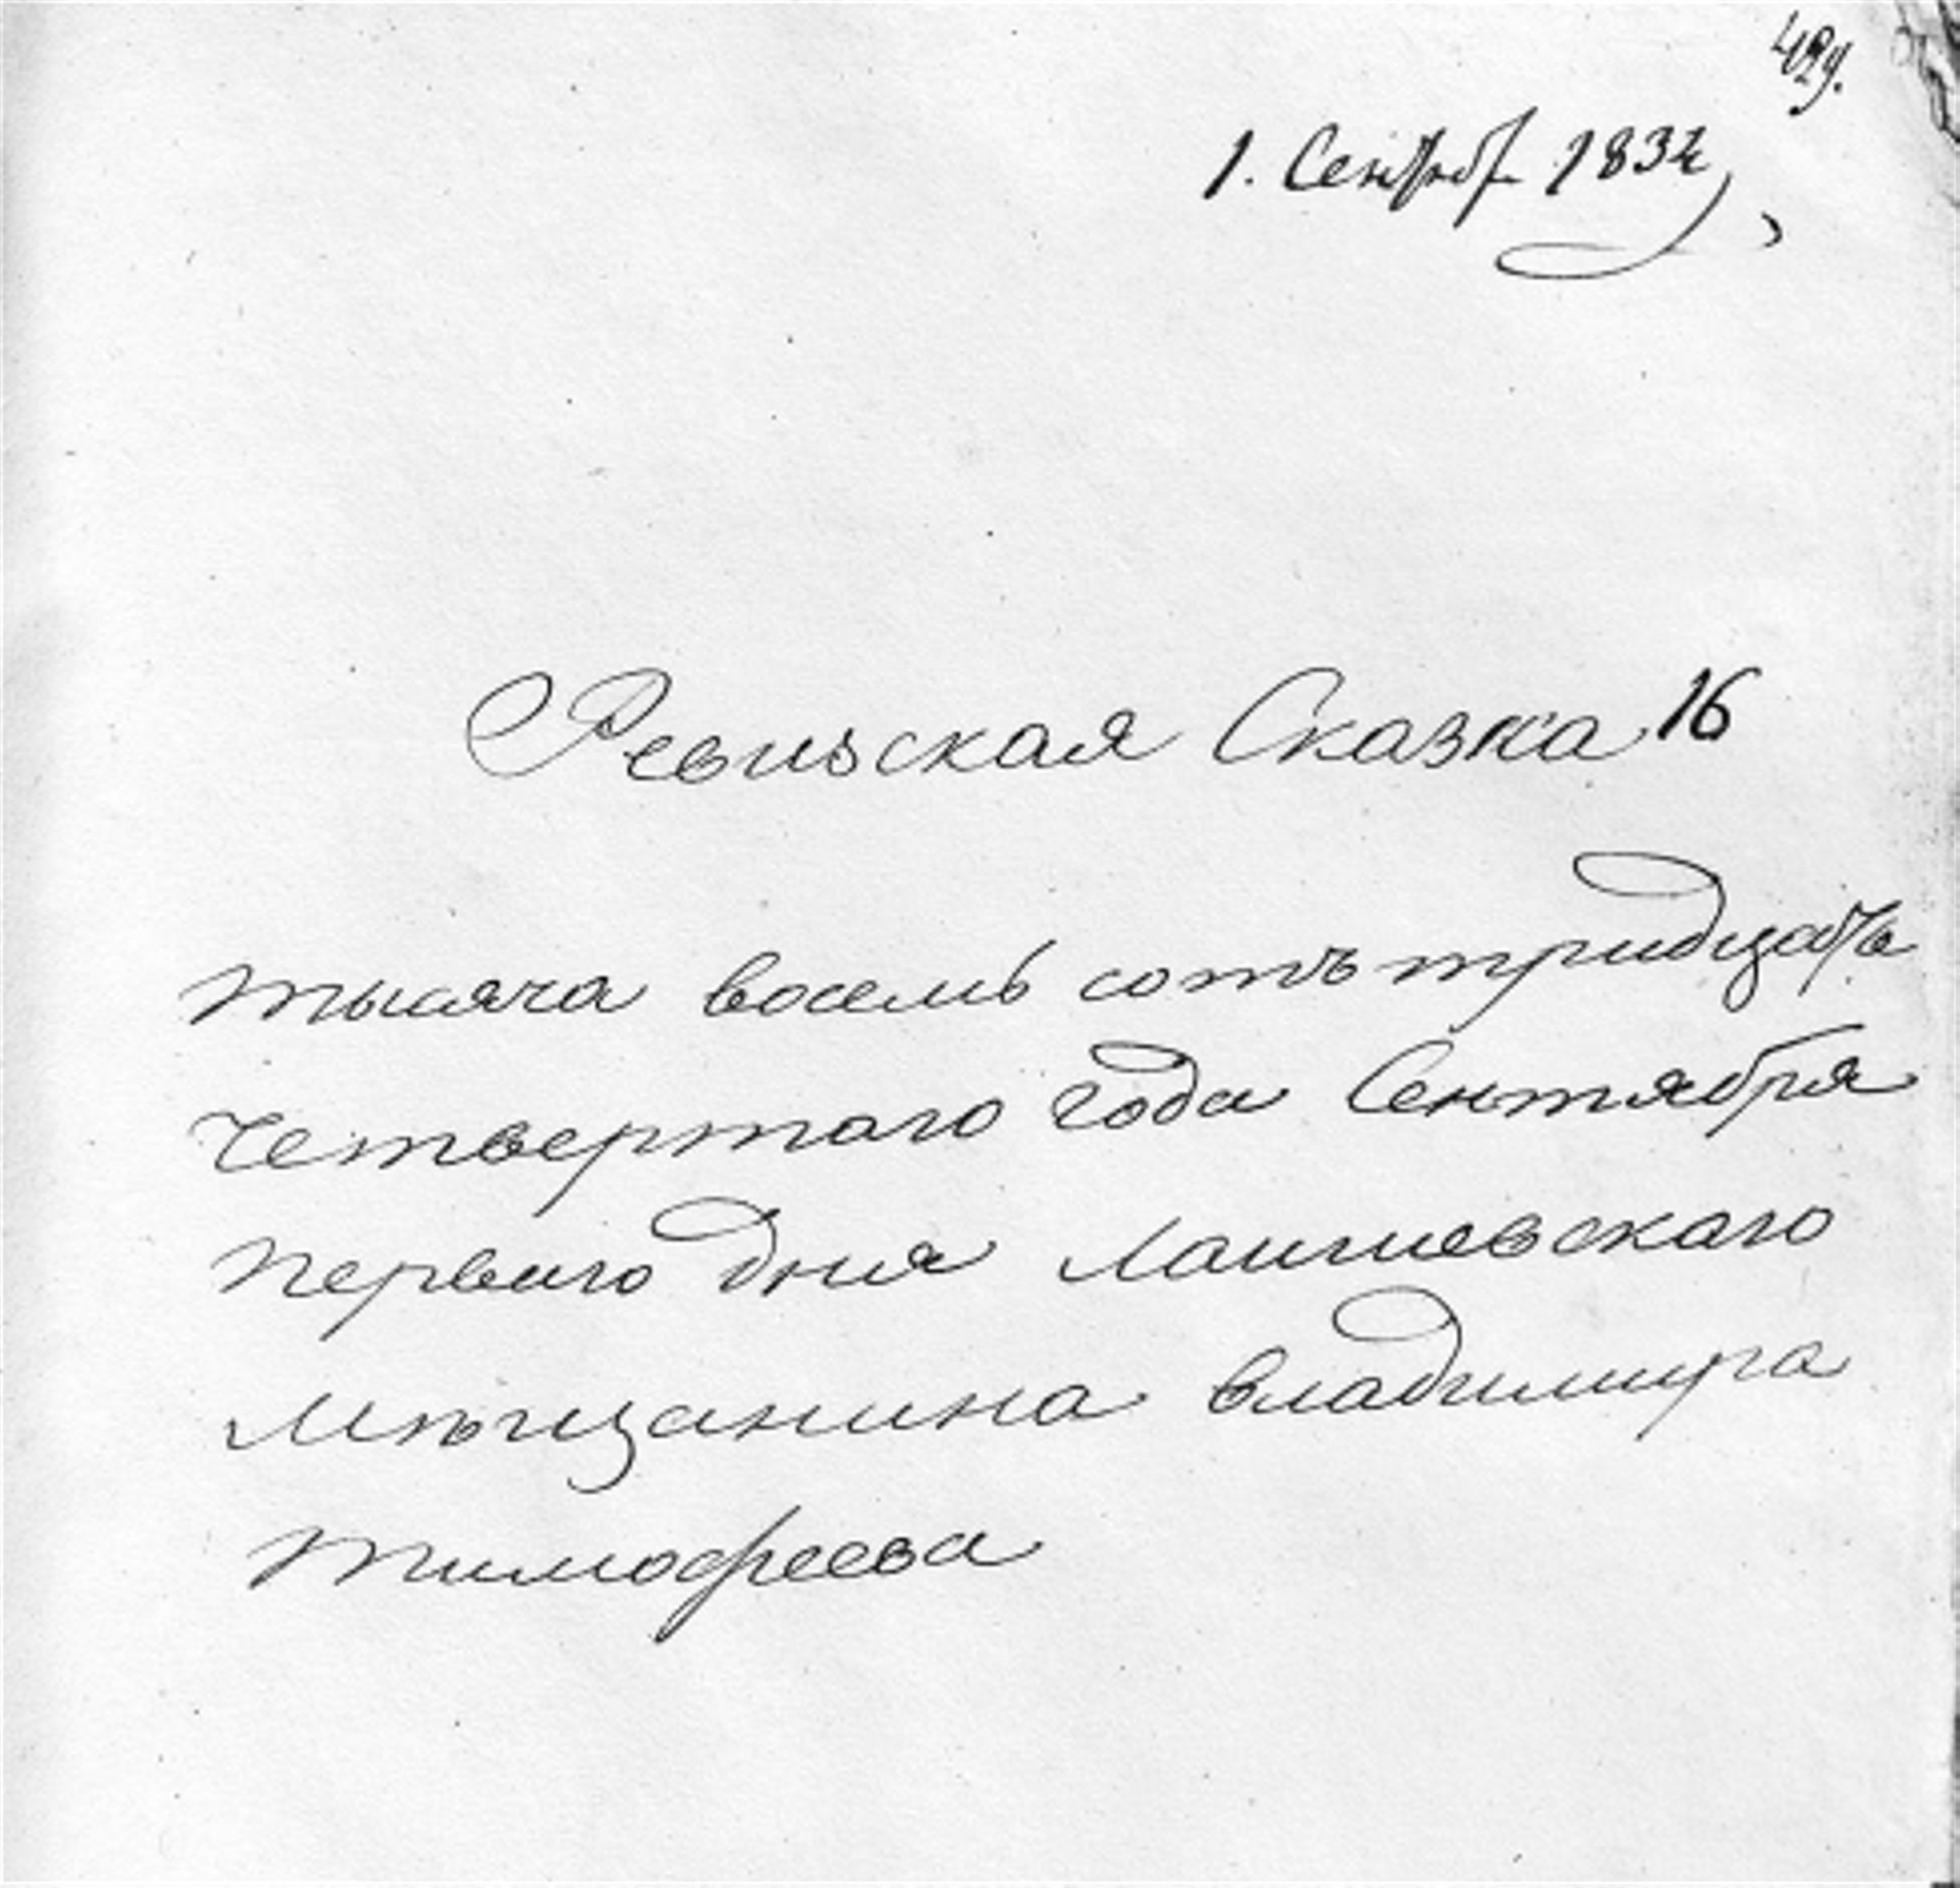 429.
1. Сентяб. 1834
Ревизская Сказка 16
тысяча восемь сотъ тридцать
четвертаго года Сентября
перваго дня Лаишевскаго
Мѣщанина Владимира
Тимофеева